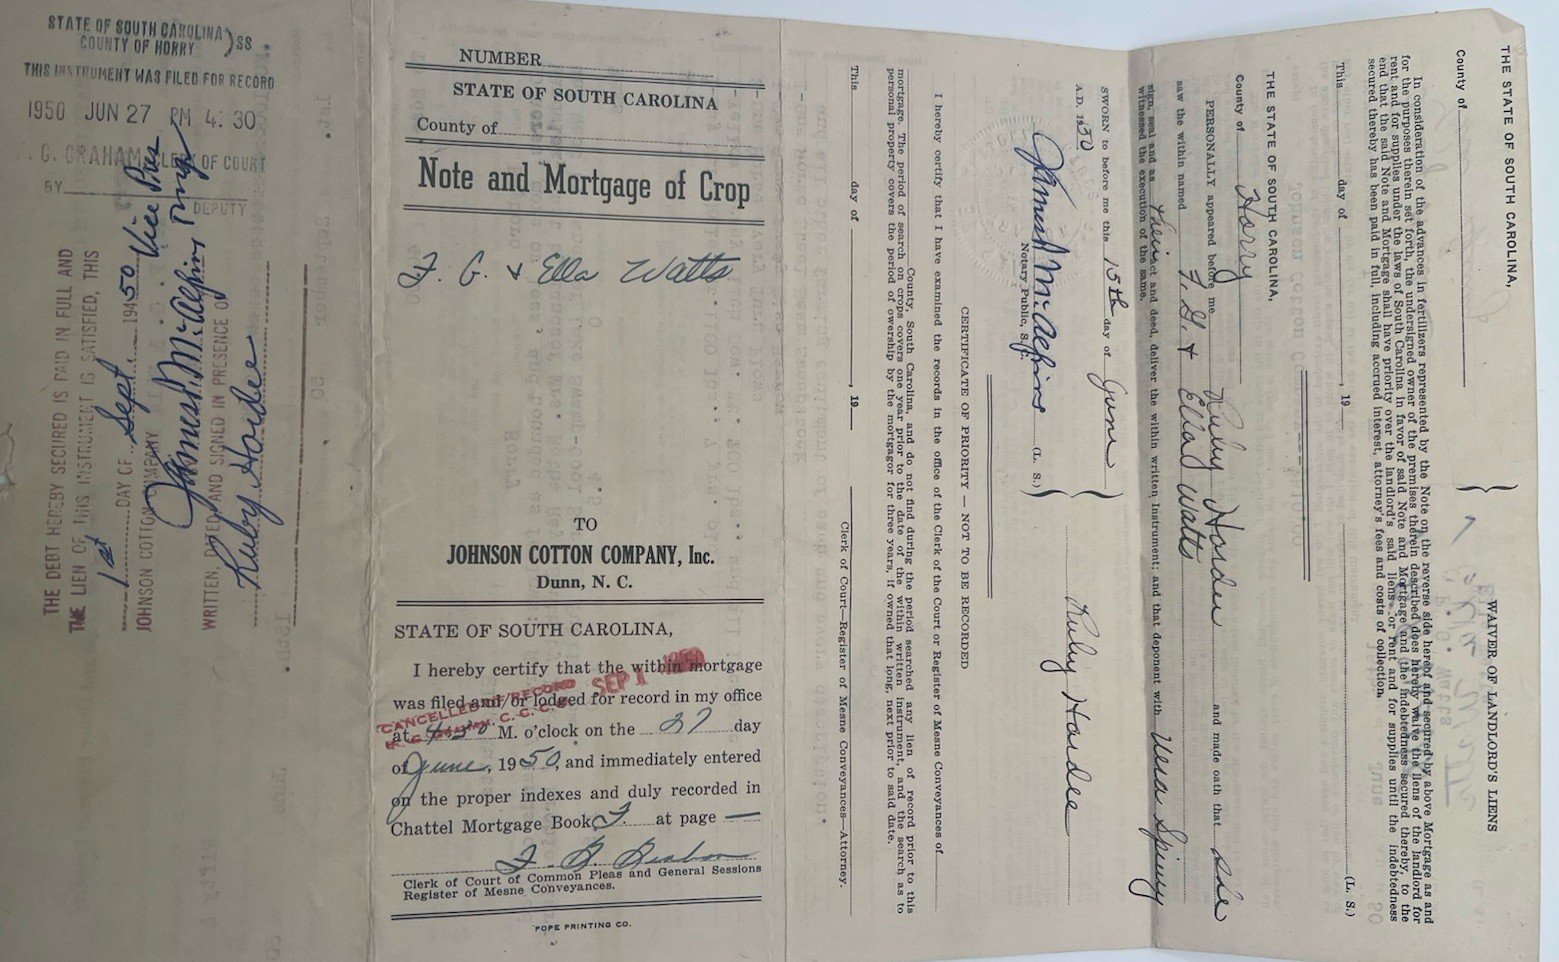 STATE OF SOUTH CAROLINA
COUNTY OF HORRY ) SS
THIS INSTRUMENT WAS FILED FOR RECORD
1950 JUN 27 PM 4:30
GRAHAM CLERK OF COURT
BY
DEPUTY
THE DEBT HEREBY SECURED IS PAID IN FULL AND
THE LIEN OF THIS INSTRUMENT IS SATISFIED, THIS
1st DAY OF Sept. 1950
JOHNSON COTTON COMPANY
James M. McAlpine Vice Pres
WRITTEN, DATED AND SIGNED IN PRESENCE OF
Ruby Hardee
NUMBER
STATE OF SOUTH CAROLINA
County of
Note and Mortgage of Crop
F. G. & Ella Watts
TO
JOHNSON COTTON COMPANY, Inc.
Dunn, N. C.
STATE OF SOUTH CAROLINA,
I hereby certify that the within mortgage
was filed and/or lodged for record in my office
at 4:30 M. o'clock on the 27 day
of June, 1950, and immediately entered
on the proper indexes and duly recorded in
Chattel Mortgage Book at page —
CANCELLED OF RECORD
SEP 1 1950
GRAHAM, C. C. C.
Clerk of Court of Common Pleas and General Sessions
Register of Mesne Conveyances.
POPE PRINTING CO.
THE STATE OF SOUTH CAROLINA,
County of
WAIVER OF LANDLORD'S LIENS
In consideration of the advances in fertilizers represented by the Note on the reverse side hereof and secured by above Mortgage as and
for the purposes therein set forth, the undersigned owner of the premises therein described does hereby waive the liens of the landlord for
rent and for supplies under the laws of South Carolina in favor of said Note and Mortgage and the indebtedness secured thereby, to the
end that the said Note and Mortgage shall have priority over the landlord's said liens for rent and for supplies until the indebtedness
secured thereby has been paid in full, including accrued interest, attorney's fees and costs of collection.
This day of , 19
(L. S.)
THE STATE OF SOUTH CAROLINA,
County of Horry
PERSONALLY appeared before me Ruby Hardee and made oath that she
saw the within named F. G. & Ella Watts
sign, seal and as their act and deed, deliver the within written Instrument; and that deponent with Vera Spivey
witnessed the execution of the same.
SWORN to before me this 15th day of June
A.D. 1950
Ruby Hardee
James M. McAlpine (L. S.)
Notary Public, S. C.
CERTIFICATE OF PRIORITY — NOT TO BE RECORDED
I hereby certify that I have examined the records in the office of the Clerk of the Court or Register of Mesne Conveyances of
County, South Carolina, and do not find during the period searched any lien of record prior to this
mortgage. The period of search on crops covers one year prior to the date of the within written instrument, and the search as to
personal property covers the period of ownership by the mortgagor for three years, if owned that long, next prior to said date.
This day of , 19
Clerk of Court—Register of Mesne Conveyances—Attorney.